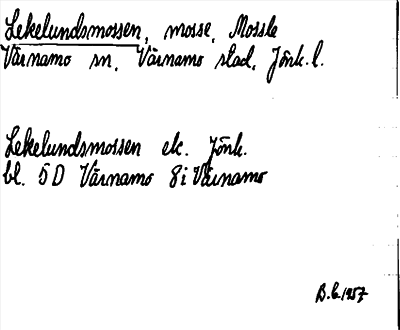 Lekelundsmossen, mosse, Mossle
Värnamo sn, Värnamo stad, Jönk. l.
Lekelundsmossen ek. Jönk.
bl. 5D Värnamo 8i Värnamo
B.L. 1957